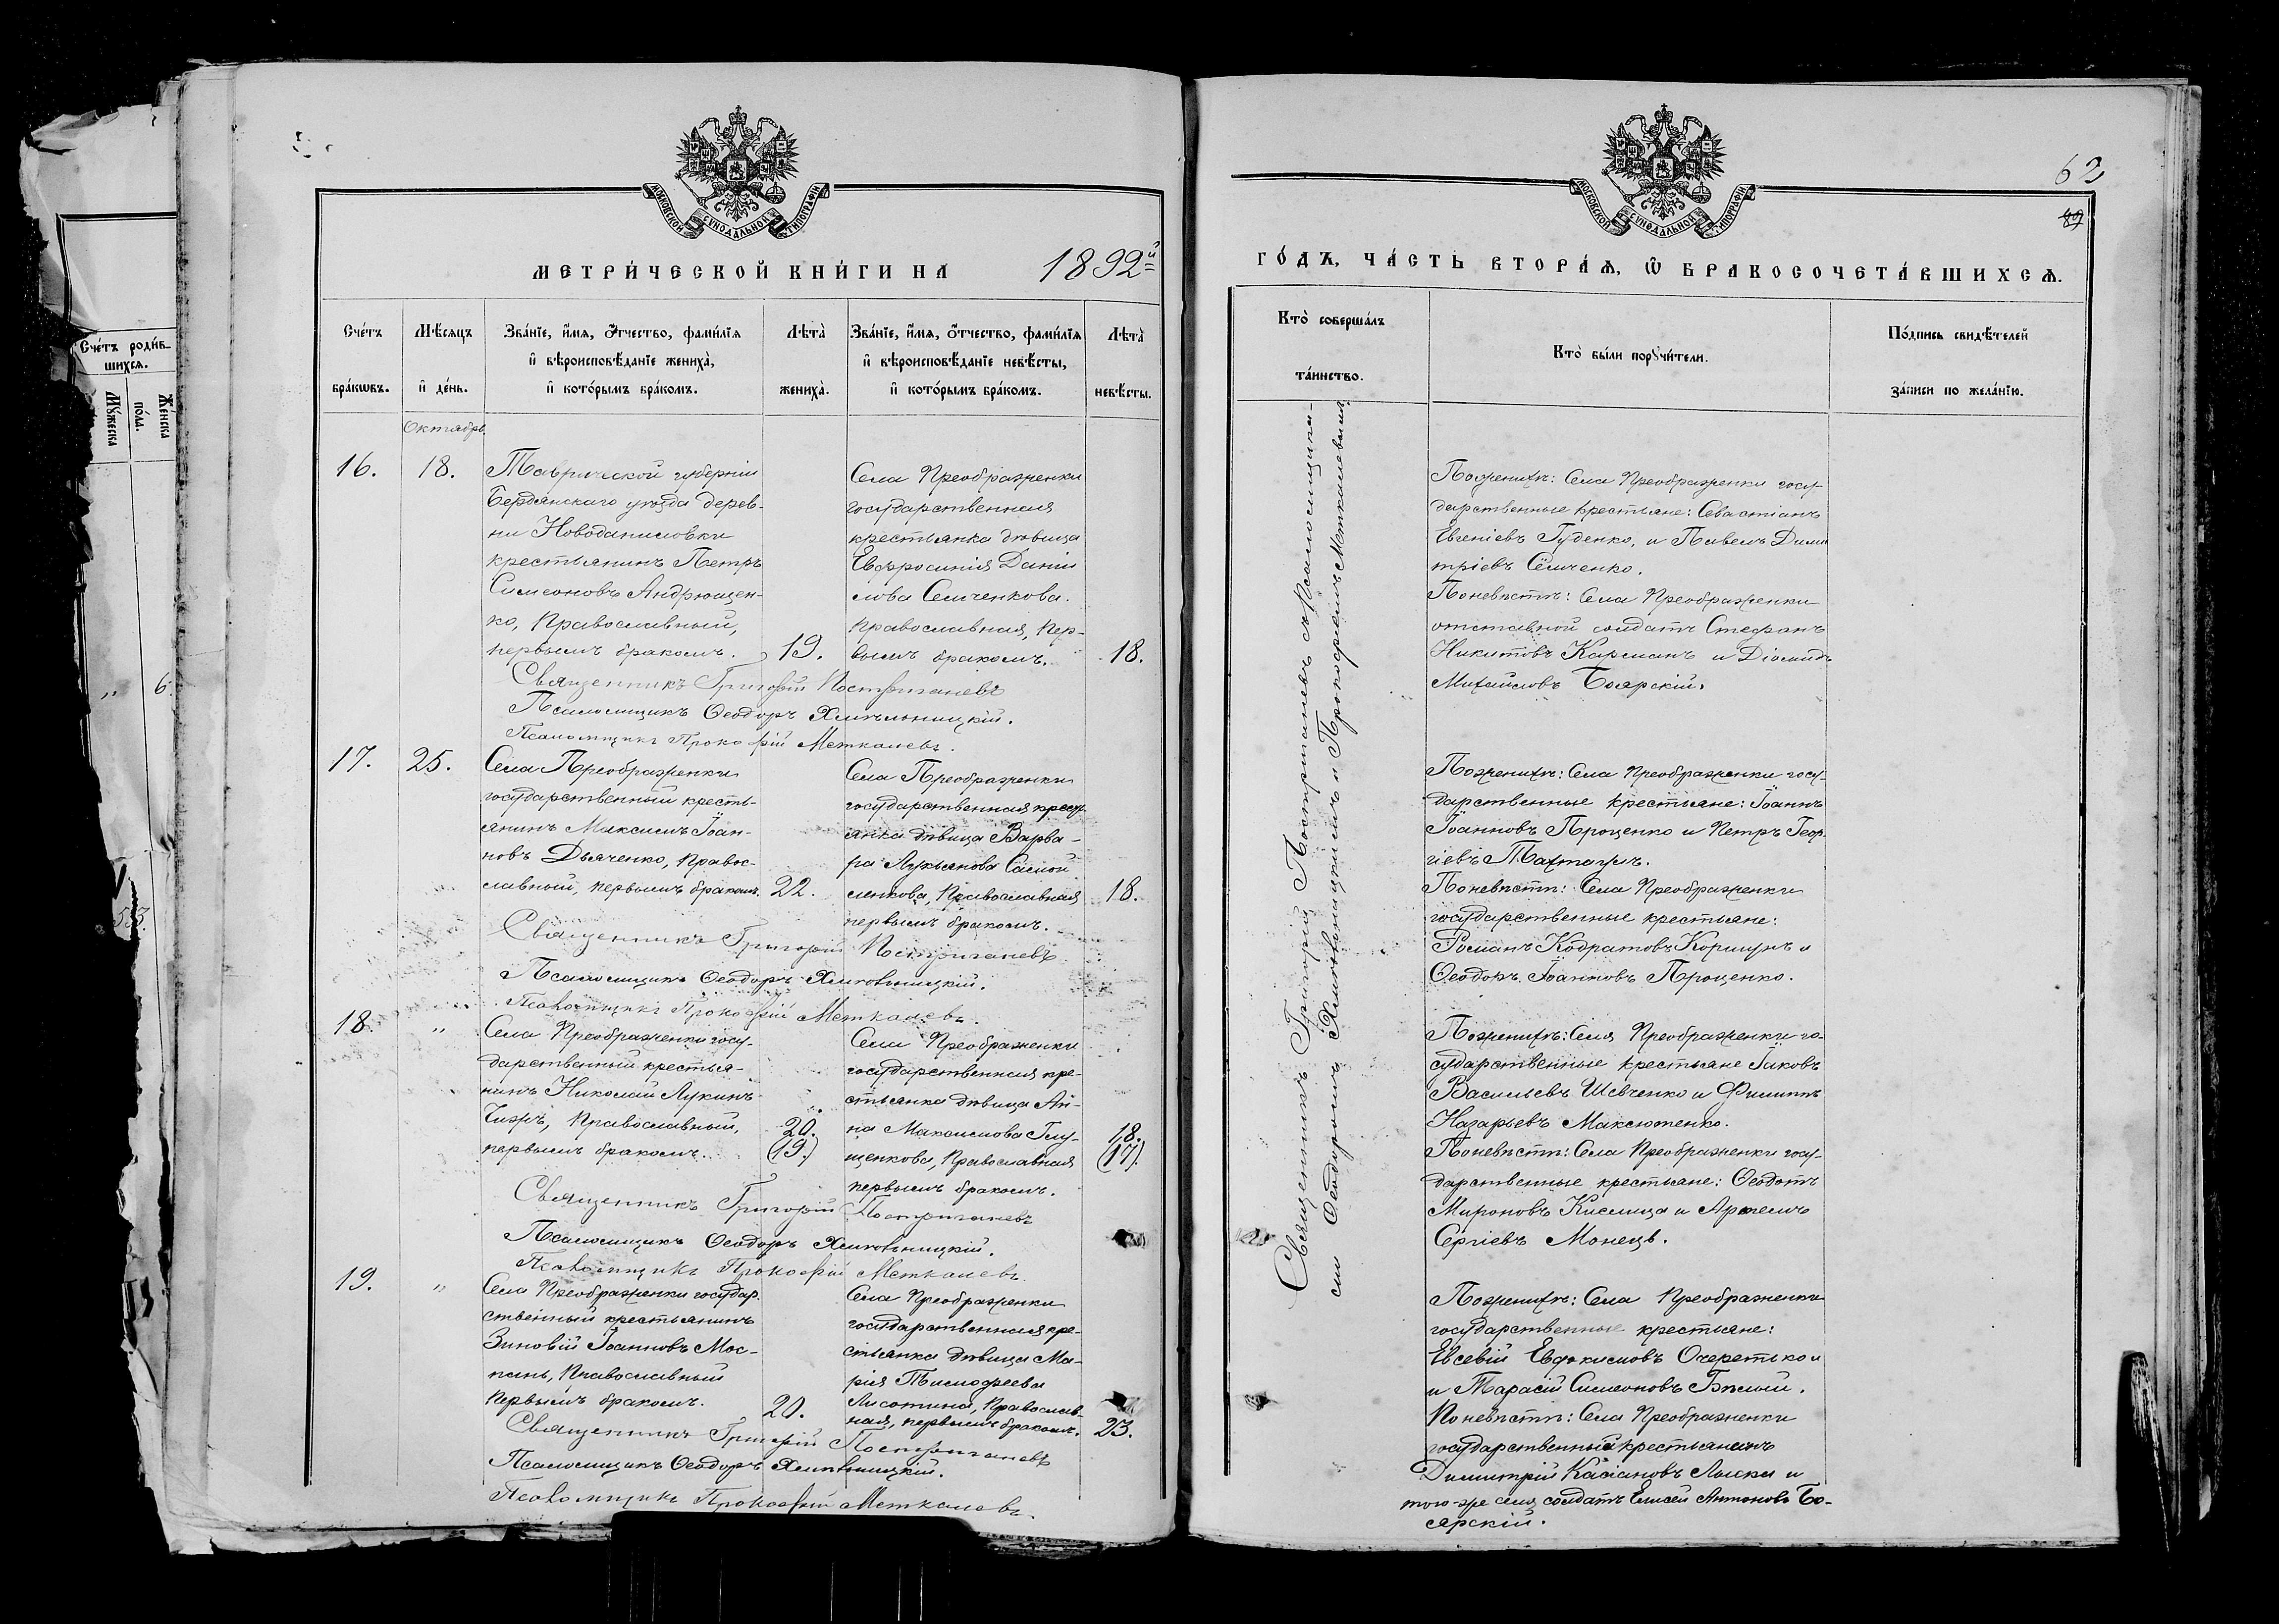 МОСКОВСКОЙ СѴНОДАЛЬНОЙ ТИПОГРАФІИ
МЕТРИ́ЧЕСКОЙ КНИ́ГИ НА 1892й
Сче́тъ роди́в-
шихсѧ.
Мꙋ́жеска
по́ла.
Же́нска
Сче́тъ
бра́кѡвъ.
Мѣ́сѧцъ
и҆ де́нь.
Зва́нїе, и҆́мѧ, ѻ҆́тчество, фами́лїѧ
и҆ вѣроисповѣ́данїе жениха̀,
и҆ кото́рымъ бра́комъ.
Лѣта̀
жениха̀.
Зва́нїе, и҆́мѧ, ѻ҆́тчество, фами́лїѧ
и҆ вѣроисповѣ́данїе невѣ́сты,
и҆ кото́рымъ бра́комъ.
Лѣта̀
невѣ́сты.
Октябрь.
16.
18.
Таврической губерніи
Бердянскаго уѣзда дерев-
ни Новоданиловки
крестьянинъ Петръ
Симеоновъ Андрющен-
ко, Православный,
первымъ бракомъ.
19.
Села Преображенки
государственная
крестьянка дѣвица
Евфросинія Даніи
лова Семченкова.
Православная, пер-
вымъ бракомъ.
18.
Священникъ Григорій Постриганевъ
Псаломщикъ Ѳеодоръ Хмѣльницкій.
Псаломщикъ Прокофій Меткалевъ.
17.
25.
Села Преображенки
государственный кресть-
янинъ Максимъ Іоан-
новъ Дьяченко, Правос-
славный, первымъ бракомъ.
22.
Села Преображенки
государственная крест
янка дѣвица Варва-
ра Лукьянова Самой
ленкова, Православная
первымъ бракомъ.
18.
Священникъ Григорій Постриганевъ
Псаломщикъ Ѳеодоръ Хмѣльницкій.
Псаломщикъ Прокофій Меткалевъ.
18.
"
Села Преображенки госу-
дарственный крестья-
нинъ Николай Лукинъ
Чижъ, Православный,
первымъ бракомъ.
20.
(19.)
Села Преображенки
государственная кре-
стьянка дѣвица Ан-
на Максимова Глу-
щенкова, Православная
первымъ бракомъ.
18.
(17).
Священникъ Григорій Постриганевъ
Псаломщикъ Ѳеодоръ Хмѣльницкій.
Псаломщикъ Прокофій Меткалевъ.
19.
"
Села Преображенки государ.
ственный крестьянинъ
Зиновій Іоанновъ Мос-
пань, Православный
первымъ бракомъ.
20.
Села Преображенки
государственная кре-
стьянка дѣвица Ма-
рія Тимофеева
Лисотина, Православ-
ная, первымъ бракомъ.
23.
Священникъ Григорій Постриганевъ
Псаломщикъ Ѳеодоръ Хмѣльницкій.
Псаломщикъ Прокофій Меткалевъ.
62
МОСКОВСКОЙ СѴНОДАЛЬНОЙ ТИПОГРАФІИ
ГО́ДЪ, ЧА́СТЬ ВТОРА́Ѧ, Ѽ БРАКОСОЧЕТА́ВШИХСѦ.
Кто̀ соверша́лъ
та́инство.
Кто̀ бы́ли порꙋчи́тели.
По́дпись свидѣ́телей
за́писи по жела́нїю.
Священникъ Григорій Постриганевъ съ Псаломщика-
ми Ѳеодоромъ Хмѣльницкимъ и Прокофіемъ Меткалевымъ
По женихѣ: Села Преображенки госу-
дарственные крестьяне: Севастіанъ
Евгеніевъ Гуденко, и Павелъ Дими
тріевъ Семченко.
По невѣстѣ: Села Преображенки
отставной солдатъ Стефанъ
Никитовъ Карманъ и Діомидъ
Михайловъ Боярскій.
По женихѣ: Села Преображенки госу-
дарственные крестьяне: Іоаннъ
Іоанновъ Проценко и Петръ Геор-
гіевъ Тахтаулъ.
По невѣстѣ: Села Преображенки
государственные крестьяне:
Романъ Кодратовъ Коршунъ и
Ѳеодоръ Іоанновъ Проценко.
По женихѣ: Села Преображенки го-
сударственные крестьяне Іаковъ
Васильевъ Шевченко и Филиппъ
Назарьевъ Максютенко.
По невѣстѣ: Села Преображенки госу-
дарственные крестьяне: Ѳеодотъ
Мироновъ Кислица и Артемъ
Сергіевъ Монецъ.
По женихѣ: Села Преображенки
государственные крестьяне:
Евсевій Евдокимовъ Очеретько и
и Тарасій Симеоновъ Бѣлый.
По невѣстѣ: Села Преображенки
государственный крестьянинъ
Димитрій Касіановъ Лыска и
того-же села солдатъ Елисей Антоновъ Бо-
ярскій.